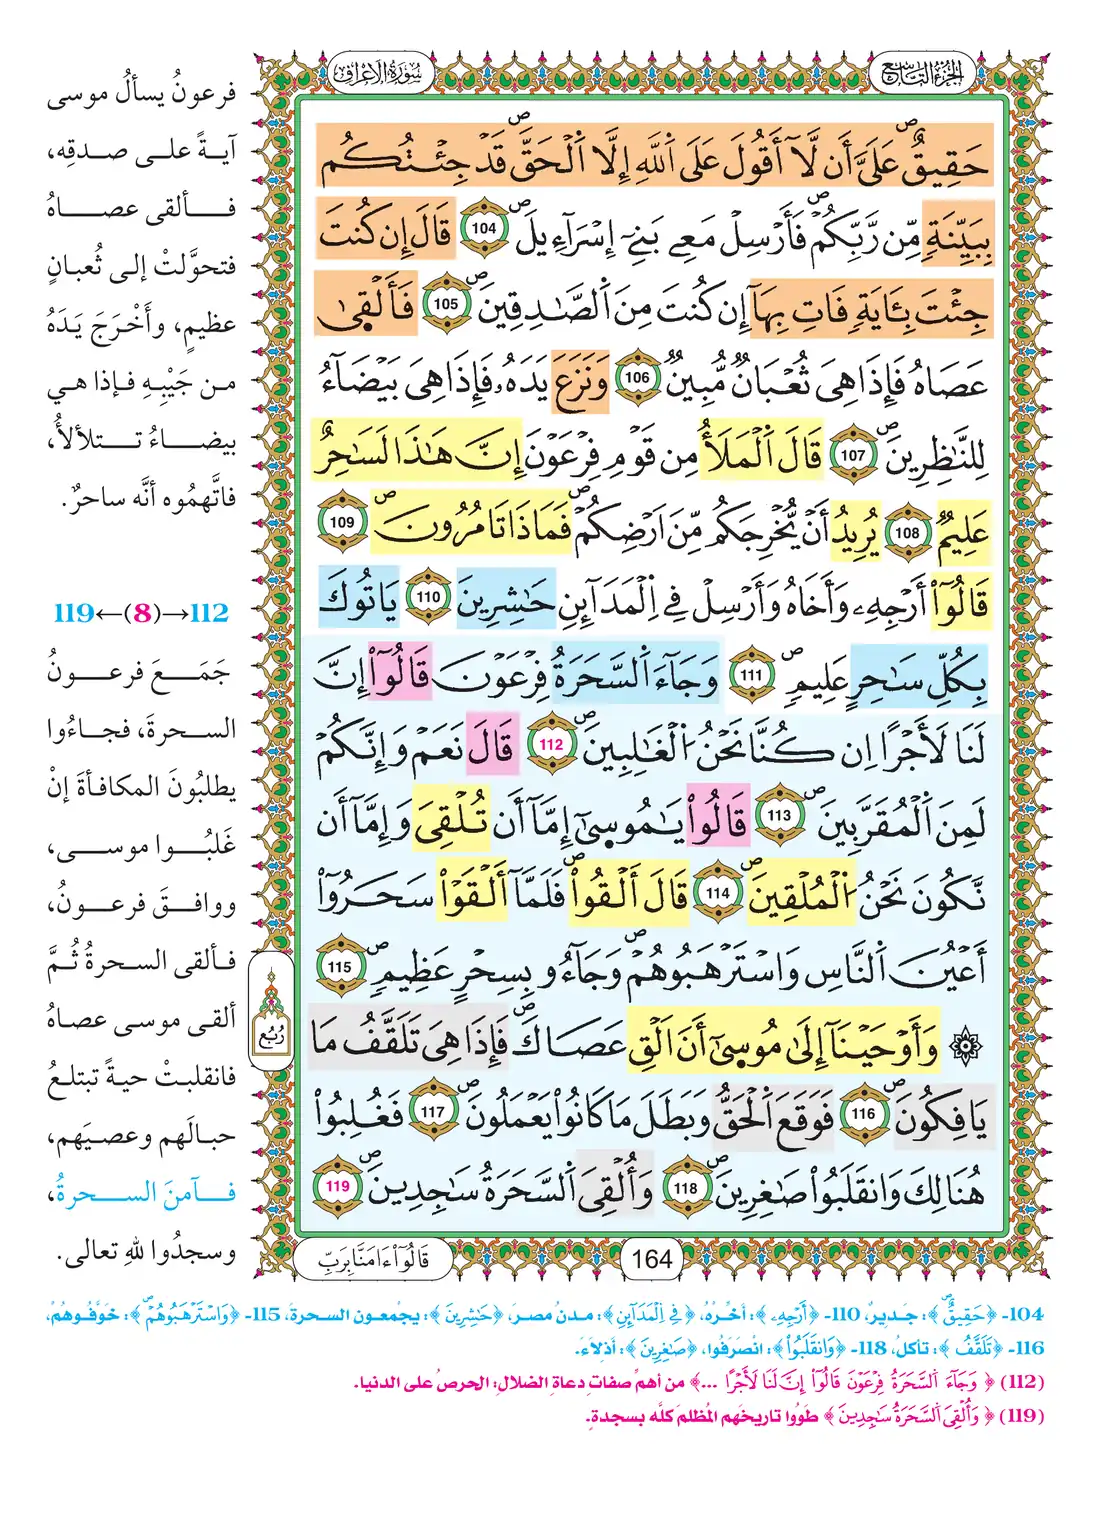 الجزء التاسع
سورة الأعراف
حَقِيقٌ عَلَيَّ أَن لَّآ أَقُولَ عَلَى اَللَّهِ إِلَّا اَلْحَقَّۖ قَدْ جِئْتُكُم
بِبَيِّنَةٍ مِّن رَّبِّكُمْۖ فَأَرْسِلْ مَعِے بَنِےٓ إِسْرَآءِيلَۖ 104 قَالَ إِن كُنتَ
جِئْتَ بِـَٔايَةٍ فَاتِ بِهَآ إِن كُنتَ مِنَ اَلصَّٰدِقِينَۖ 105 فَأَلْقَىٰ
عَصَاهُ فَإِذَا هِيَ ثُعْبَانٌ مُّبِينٌ 106 وَنَزَعَ يَدَهُۥ فَإِذَا هِيَ بَيْضَآءُ
لِلنَّٰظِرِينَۖ 107 قَالَ اَلْمَلَأُ مِن قَوْمِ فِرْعَوْنَ إِنَّ هَٰذَا لَسَٰحِرٌ
عَلِيمٌ 108 يُرِيدُ أَنْ يُّخْرِجَكُم مِّنَ اَرْضِكُمْۖ فَمَاذَا تَامُرُونَۖ 109
قَالُوٓاْ أَرْجِهِۦ وَأَخَاهُ وَأَرْسِلْ فِے اِلْمَدَآئِنِ حَٰشِرِينَ 110 يَاتُوكَ
بِكُلِّ سَٰحِرٍ عَلِيمٍۖ 111 وَجَآءَ اَلسَّحَرَةُ فِرْعَوْنَ قَالُوٓاْ إِنَّ
لَنَا لَأَجْرًا اِن كُنَّا نَحْنُ اُلْغَٰلِبِينَۖ 112 قَالَ نَعَمْ وَإِنَّكُمْ
لَمِنَ اَلْمُقَرَّبِينَۖ 113 قَالُواْ يَٰمُوسَىٰٓ إِمَّآ أَن تُلْقِيَ وَإِمَّآ أَن
نَّكُونَ نَحْنُ اُلْمُلْقِينَۖ 114 قَالَ أَلْقُواْۖ فَلَمَّآ أَلْقَوْاْ سَحَرُوٓاْ
أَعْيُنَ اَلنَّاسِ وَاسْتَرْهَبُوهُمْۖ وَجَآءُو بِسِحْرٍ عَظِيمٍۖ 115
۞ وَأَوْحَيْنَآ إِلَىٰ مُوسَىٰٓ أَنَ اَلْقِ عَصَاكَۖ فَإِذَا هِيَ تَلَقَّفُ مَا
يَافِكُونَۖ 116 فَوَقَعَ اَلْحَقُّ وَبَطَلَ مَا كَانُواْ يَعْمَلُونَۖ 117 فَغُلِبُواْ
هُنَالِكَ وَانقَلَبُواْ صَٰغِرِينَۖ 118 وَأُلْقِيَ اَلسَّحَرَةُ سَٰجِدِينَۖ 119
رُبُع
164
قَالُوٓاْ ءَامَنَّا بِرَبِّ
فرعونُ يسألُ موسى
آيةً على صدقِه،
فألقى عصاهُ
فتحوَّلتْ إلى ثُعبانٍ
عظيمٍ، وأَخْرَجَ يَدَهُ
من جَيْبِهِ فإذا هي
بيضاءُ تتلألأُ،
فاتَّهمُوه أنَّه ساحرٌ.
119←(8)→112
جَمَعَ فرعونُ
السحرةَ، فجاءُوا
يطلبُونَ المكافأةَ إنْ
غَلبُوا موسى،
ووافقَ فرعونُ،
فألقى السحرةُ ثُمَّ
ألقى موسى عصاهُ
فانقلبتْ حيةً تبتلعُ
حبالَهم وعصيَهم،
فآمنَ السحرةُ،
وسجدُوا للهِ تعالى.
104- ﴿حَقِيقٌۖ﴾: جَديرٌ، 110- ﴿أَرْجِهِۦ﴾: أَخِّرْهُ، ﴿فِے اِلْمَدَآئِنِ﴾: مدنُ مصرَ، ﴿حَٰشِرِينَ﴾: يجْمعون السحرةَ، 115- ﴿وَاسْتَرْهَبُوهُمْۖ﴾: خَوَّفُوهُمْ،
116- ﴿تَلَقَّفُ﴾: تأكلُ، 118- ﴿وَانقَلَبُواْ﴾: انْصَرَفُوا، ﴿صَٰغِرِينَ﴾: أذِلاءَ.
(112) ﴿وَجَآءَ اَلسَّحَرَةُ فِرْعَوْنَ قَالُوٓاْ إِنَّ لَنَا لَأَجْرًا ...﴾ من أهمِّ صفاتِ دعاةِ الضلالِ: الحرصُ على الدنيا.
(119) ﴿وَأُلْقِيَ اَلسَّحَرَةُ سَٰجِدِينَ﴾ طَوُوا تاريخَهم المُظلمَ كلَّه بسجدةٍ.